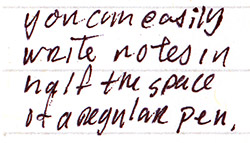 you can easily
write notes in
half the space
of a regular pen.